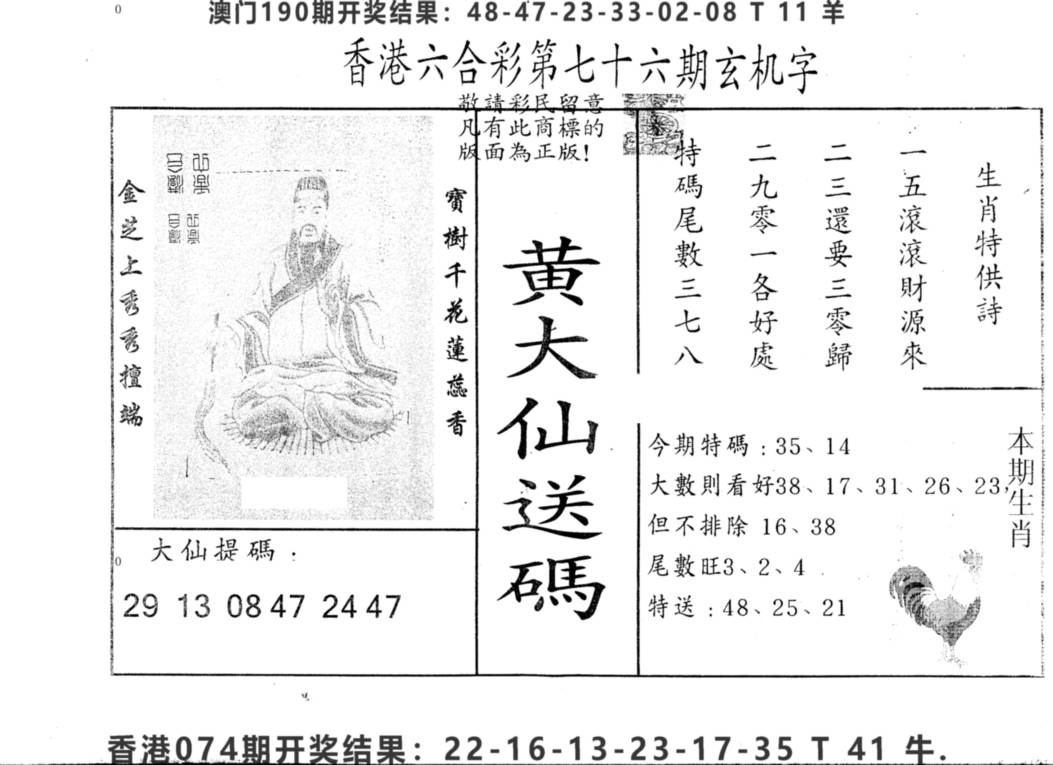 0
澳门190期开奖结果：48-47-23-33-02-08 T 11 羊
香港六合彩第七十六期玄机字
敬請彩民留意
凡有此商標的
版面為正版!
生肖特供詩
一五滾滾財源來
二三還要三零歸
二九零一各好處
特碼尾數三七八
黃大仙送碼
寶樹千花蓮蕊香
金芝上秀秀擅端
今期特碼：35、14
大數則看好38、17、31、26、23,
但不排除 16、38
尾數旺3、2、4
特送：48、25、21
本期生肖
0
大仙提碼：
29 13 08 47 24 47
香港074期开奖结果：22-16-13-23-17-35 T 41 牛.